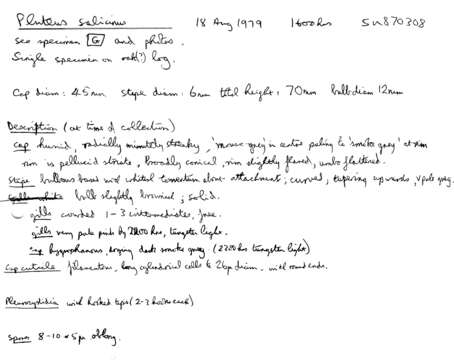 Pluteus salicinus 18 Aug 1979 1600hrs SU870308
see specimen G and photos.
Single specimen on oak(?) log.
Cap diam: 45mm stipe diam: 6mm total height: 70mm bulb diam 12mm
Description (at time of collection)
Cap humid, radially minutely streaky, 'mouse grey' in centre paling to 'smoke grey' at rim
rim is pellucid striate, broadly conical, rim slightly flared, umbo flattened.
Stipe bulbous base with whitish tomentum above attachment, curved, tapering upwards, v pale grey.
bulb slightly browner, solid.
gills crowded 1-3 intermediates, free.
gills very pale pink by 2200 hrs, tungsten light.
Cap hygrophanous, drying dark smoke grey (2200hrs tungsten light)
Cap cuticle filamentous, long cylindrical cells to 26µ diam. with round ends.
Pleurocystidia with hooked tips (2-3 hooks each)
Spores 8-10 x 5µ oblong.